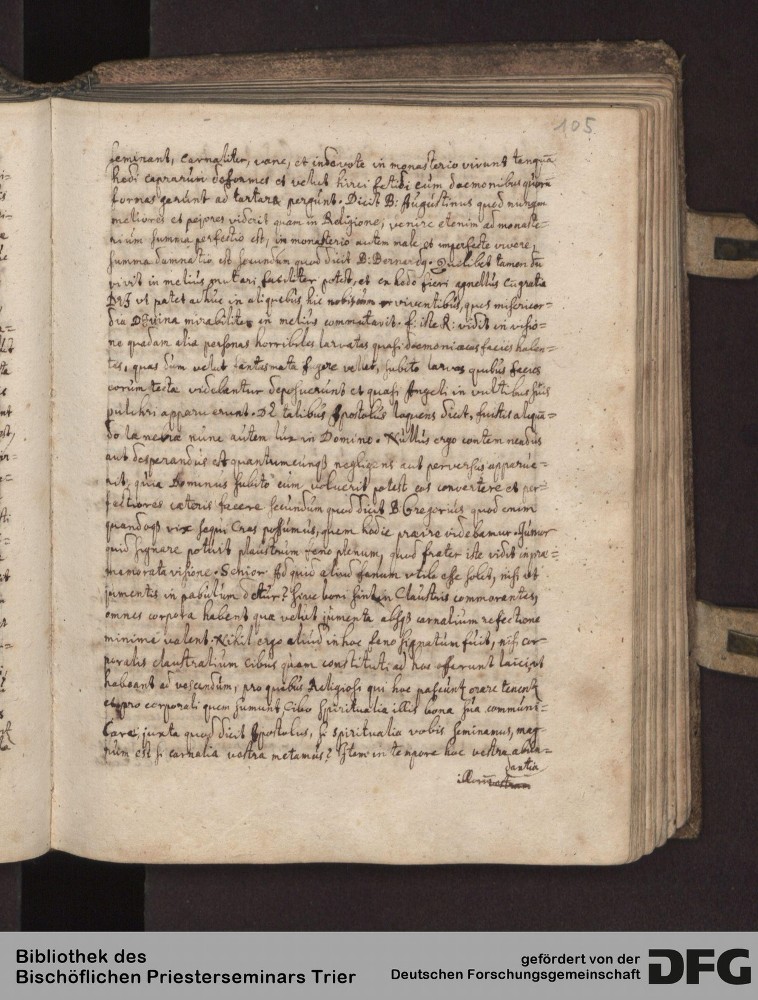 105
seminant, carnaliter, vane, et indevote in monasterio vivunt tanquā
hœdi caprarum deformes et velut hirci fetidi cum dæmonibus quorū
formas gerunt ad tartara pergunt. Dicit B: Augustinus quod nunquam
meliores et pejores viderit quam in Religione; venire etenim ad monaste=
rium summa perfectio est, in monasterio autem male et imperfecte vivere,
summa damnatio est secundum quod dicit B: Bernar
vivit in melius mutari faciliter potest, et ex hœdo fieri agnellus cū gratia
ut patet adhuc in aliquibus hic nobiscum viventibus, quos misericor=
dia Divina mirabiliter in melius commutavit. f: iste R: vidit in visio=
ne quadam alia personas horribiles larvatas quasi dæmoniacas facies haben=
tes, quas dum velut fantasmata fugere vellet, subito larvas quibus facies
eorum tectæ videbantur deposuerunt et quasi Angeli in vultibus suis
pulchri apparuerunt. De talibus Apostolus loquens dicit, fuistis aliquā=
do tenebræ nunc autem lux in Domino. Nullus ergo contemnendus
aut desperandus est quantumcunq negligens aut perversus apparue=
rit, quia Dominus subito cum voluerit potest eos convertere et per=
fectiores cæteris facere secundum quod dicit B Gregorius quod enim
quandoq vix sequi Cras possumus, quem hodie præire videbamur. Junior
quid signare potuit plaustrum feno plenum, quod frater iste vidit in præ=
memorata visione. Senior Ad quid aliud fænum utile esse solet, nisi ut
jumentis in pabulum detur? sive boni sint in Claustris commorantes,
omnes corpora habent quæ velut jumenta absq carnalium refectione
minime valent. Nihil ergo aliud in hoc feno signatum fuit, nisi cor=
poralis claustralium cibus quam constituti ad hoc offerunt laici ut
habeant ad vescendum, pro quibus Religiosi qui hoc pascunt orare tenent
et pro corporali quem sumunt Cibo spiritualia illis bona sua communi=
care, juxta quod dicit Apostolus, si spiritualia vobis seminamus, mag=
num est si carnalia vestra metamus? Item in tempore hoc vestra abun=
dantia
illorū
Bibliothek des
Bischöflichen Priesterseminars Trier
gefördert von der
Deutschen Forschungsgemeinschaft
DFG